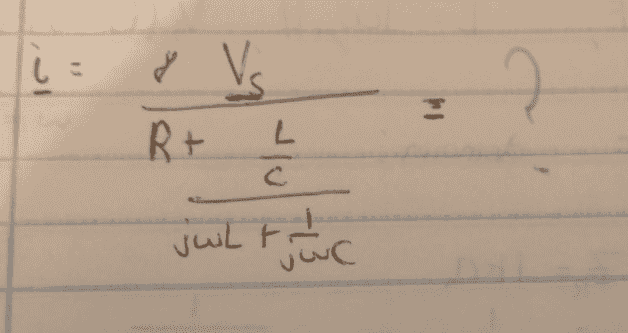 i = 8 V_S / (R + (L/C) / (jωL + 1/(jωC))) = ?